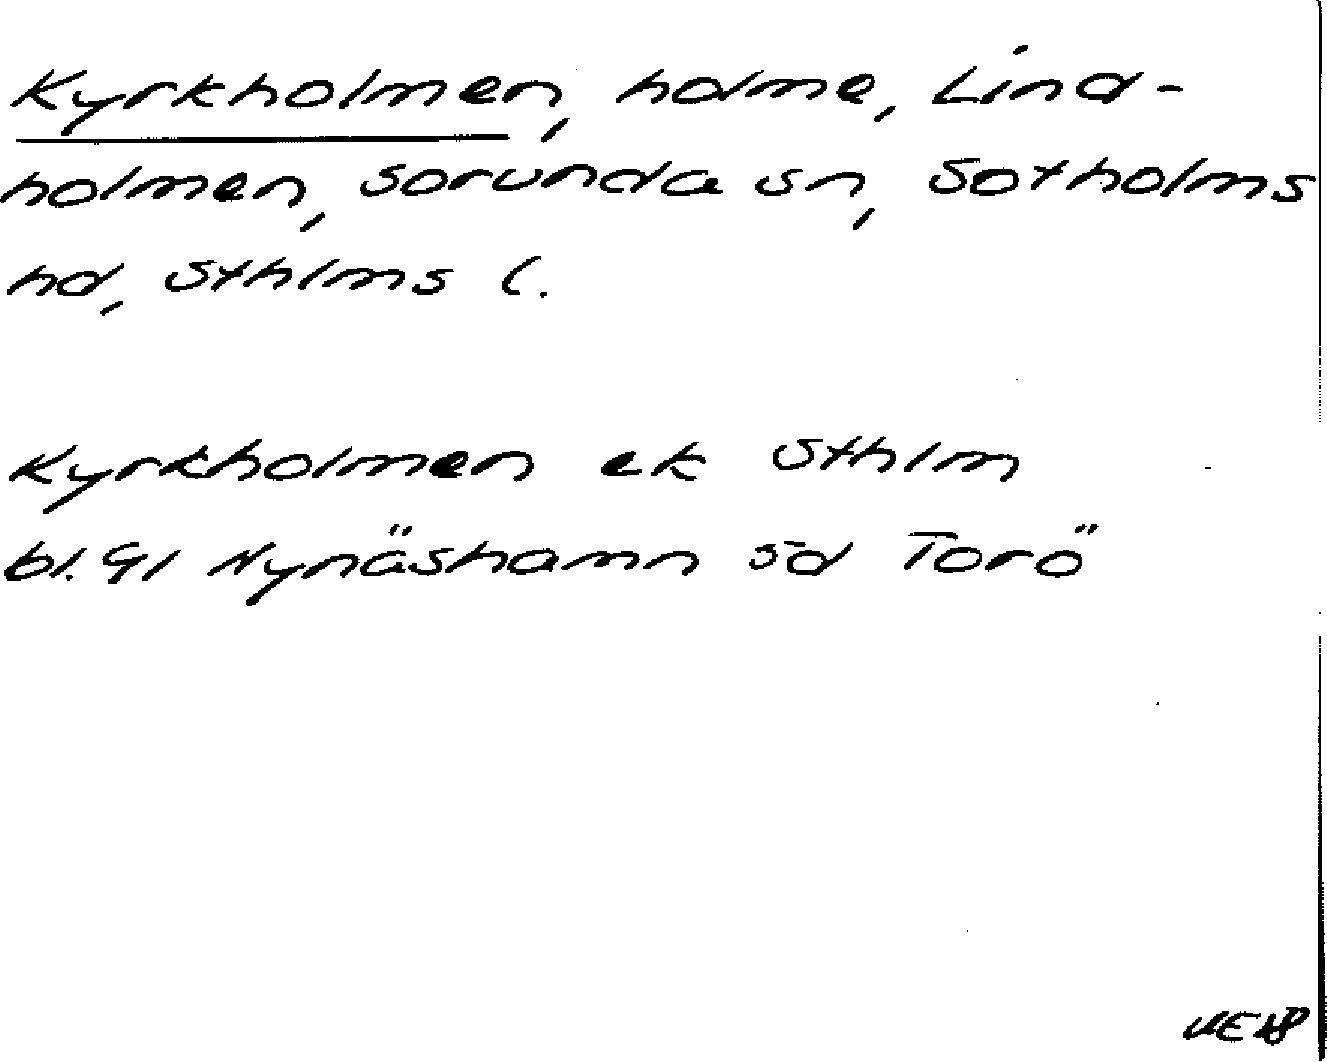 Kyrkholmen, holme, Lind-
holmen, Sorunda sn, Sotholms
hd, Sthlms l.
Kyrkholmen ek Sthlm
bl. 91 Nynäshamn sö Torö